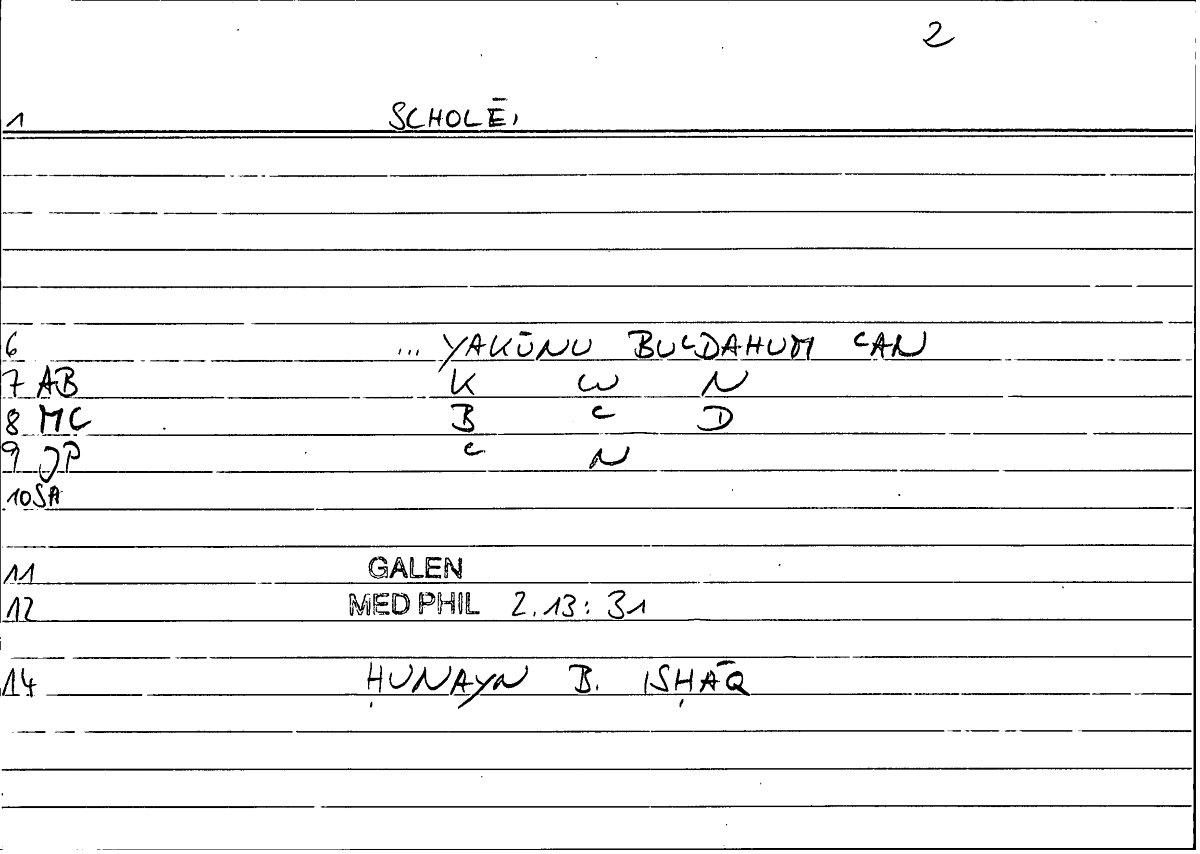 2
1 SCHOLĒ,
6 ... YAKŪNU BUʿDAHUM ʿAN
7 AB K W N
8 MC B ʿ D
9 JP ʿ N
10 SA
11 GALEN
12 MED PHIL 2.13: 31
14 ḤUNAYN B. ISḤĀQ